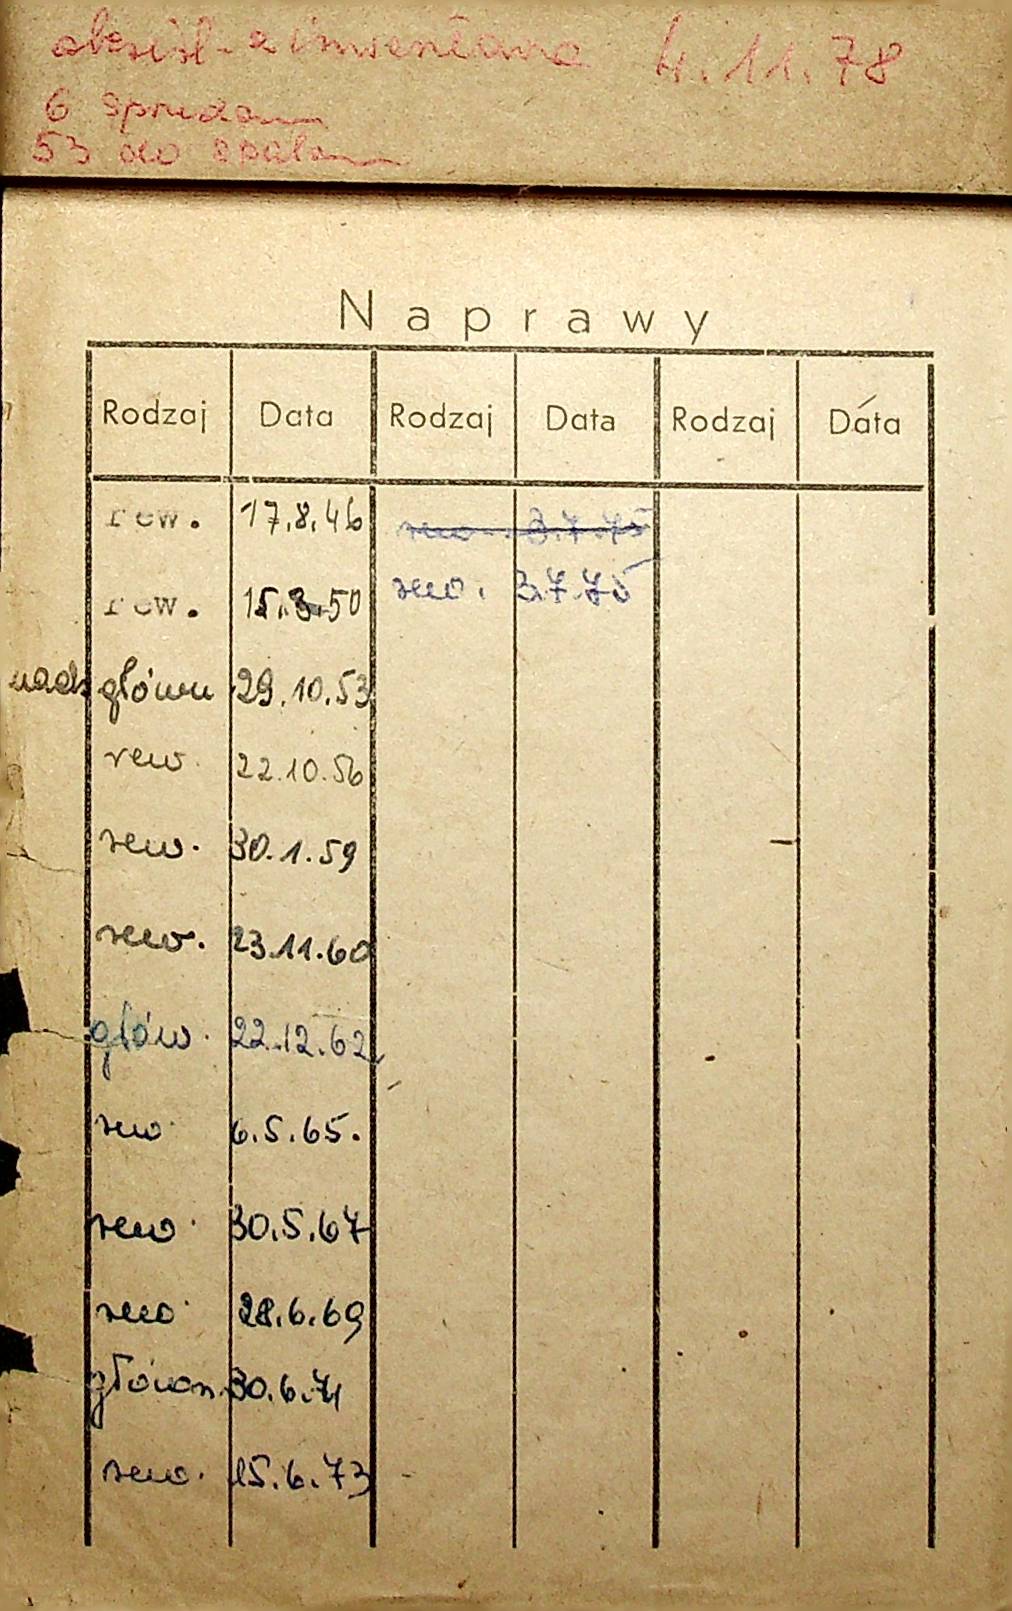 skreśl. z inwentarza 4.11.78
6 sprzedano
53 do spalania
Naprawy
Rodzaj Data Rodzaj Data Rodzaj Data
rew. 17.8.46 rew. 3.7.75
rew. 15.3.50 rew. 3.7.75
nadz główn 29.10.53
rew. 22.10.56
rew. 30.1.59
rew. 23.11.60
głów. 22.12.62
rew 6.5.65.
rew. 30.5.67
rew. 28.6.69
główn. 30.6.71
rew. 15.6.73